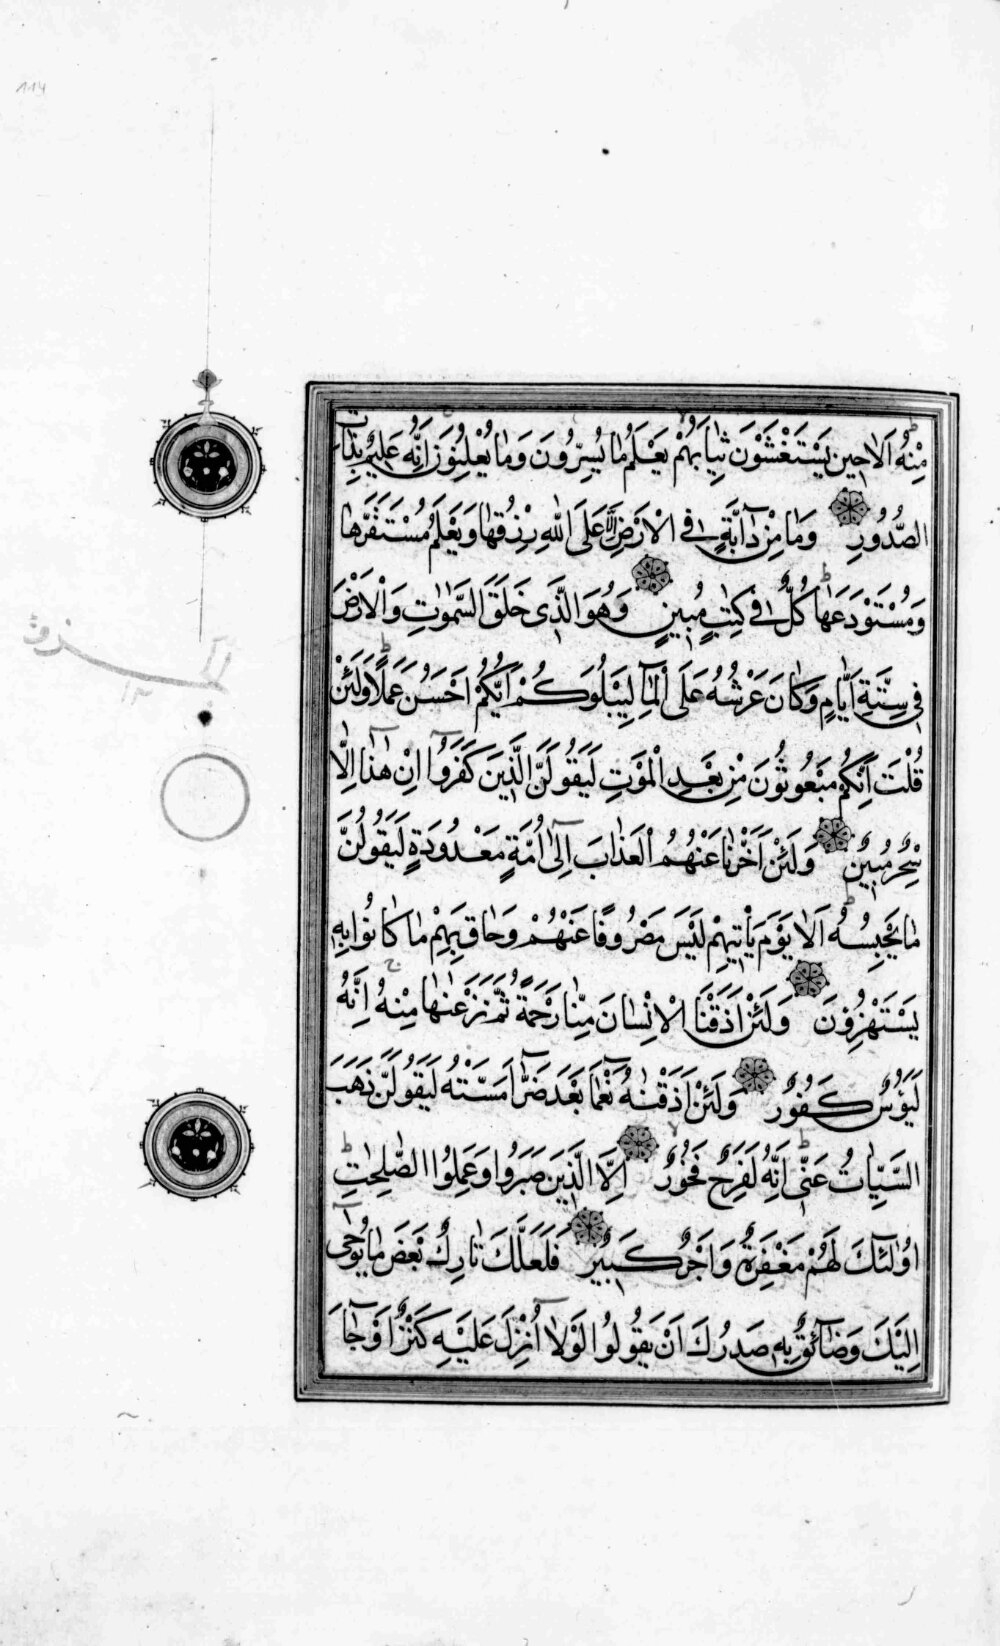 مِنْهُ اَلَا حِينَ يَسْتَغْشُونَ ثِيَابَهُمْ يَعْلَمُ مَا يُسِرُّونَ وَمَا يُعْلِنُونَ اِنَّهُ عَلِيمٌ بِذَاتِ
الصُّدُورِ وَمَا مِنْ دَآبَّةٍ فِي الْاَرْضِ اِلَّا عَلَى اللّٰهِ رِزْقُهَا وَيَعْلَمُ مُسْتَقَرَّهَا
وَمُسْتَوْدَعَهَا كُلٌّ فِي كِتَابٍ مُبِينٍ وَهُوَ الَّذِي خَلَقَ السَّمٰوَاتِ وَالْاَرْضَ
فِي سِتَّةِ اَيَّامٍ وَكَانَ عَرْشُهُ عَلَى الْمَآءِ لِيَبْلُوَكُمْ اَيُّكُمْ اَحْسَنُ عَمَلًا وَلَئِنْ
قُلْتَ اِنَّكُمْ مَبْعُوثُونَ مِنْ بَعْدِ الْمَوْتِ لَيَقُولَنَّ الَّذِينَ كَفَرُوا اِنْ هٰذَا اِلَّا
سِحْرٌ مُبِينٌ وَلَئِنْ اَخَّرْنَا عَنْهُمُ الْعَذَابَ اِلٰٓى اُمَّةٍ مَعْدُودَةٍ لَيَقُولُنَّ
مَا يَحْبِسُهُ اَلَا يَوْمَ يَأْتِيهِمْ لَيْسَ مَصْرُوفًا عَنْهُمْ وَحَاقَ بِهِمْ مَا كَانُوا بِهِ
يَسْتَهْزِؤُنَ وَلَئِنْ اَذَقْنَا الْاِنْسَانَ مِنَّا رَحْمَةً ثُمَّ نَزَعْنَاهَا مِنْهُ اِنَّهُ
لَيَؤُسٌ كَفُورٌ وَلَئِنْ اَذَقْنَاهُ نَعْمَآءَ بَعْدَ ضَرَّآءَ مَسَّتْهُ لَيَقُولَنَّ ذَهَبَ
السَّيِّاٰتُ عَنِّي اِنَّهُ لَفَرِحٌ فَخُورٌ اِلَّا الَّذِينَ صَبَرُوا وَعَمِلُوا الصَّالِحَاتِ
اُولٰٓئِكَ لَهُمْ مَغْفِرَةٌ وَاَجْرٌ كَبِيرٌ فَلَعَلَّكَ تَارِكٌ بَعْضَ مَا يُوحٰٓى
اِلَيْكَ وَضَآئِقٌ بِهِ صَدْرُكَ اَنْ يَقُولُوا لَوْلَآ اُنْزِلَ عَلَيْهِ كَنْزٌ اَوْ جَآءَ